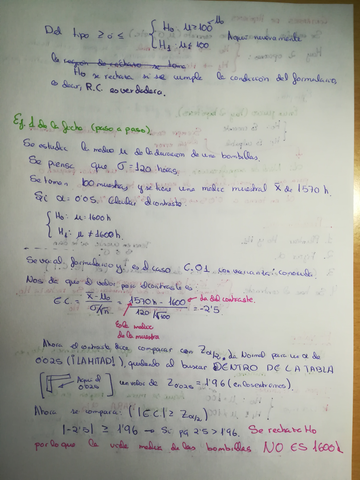 Del tipo ≥ o ≤ { H0: μ ≥ 100 → μ0
H1: μ < 100
Aquí nuevamente
la región de rechazo se toma
H0 se rechaza si se cumple la condición del formulario
es decir, R.C. es verdadera.
Ej. 1 de la ficha (paso a paso)
Se estudia la media μ de la duración de unas bombillas.
Se piensa que σ = 120 horas.
Se toman 100 muestras y se tiene una media muestral x̄ de 1570 h
Si α = 0'05. Calcular el contraste
{ H0: μ = 1600 h
H1: μ ≠ 1600 h.
Se va al formulario y es el caso C.01 con varianza conocida.
Nos da que el valor para el contraste es
EC = x̄ - μ0 / σ/√n = 1570 - 1600 / 120/√100 = -2'5
da del contraste.
Es la media de la muestra
Ahora el contraste dice comparar con Zα/2, da Normal para un α de
0'025 (¡¡LA MITAD!!), quedando al buscar DENTRO DE LA TABLA
Aquí el 0'025
un valor de Z0'025 = 1'96 (en los extremos).
Ahora se compara: (|EC| ≥ Zα/2)
|-2'5| ≥ 1'96 → Sí pq 2'5 > 1'96. Se rechaza H0
por lo que la vida media de las bombillas NO ES 1600 h